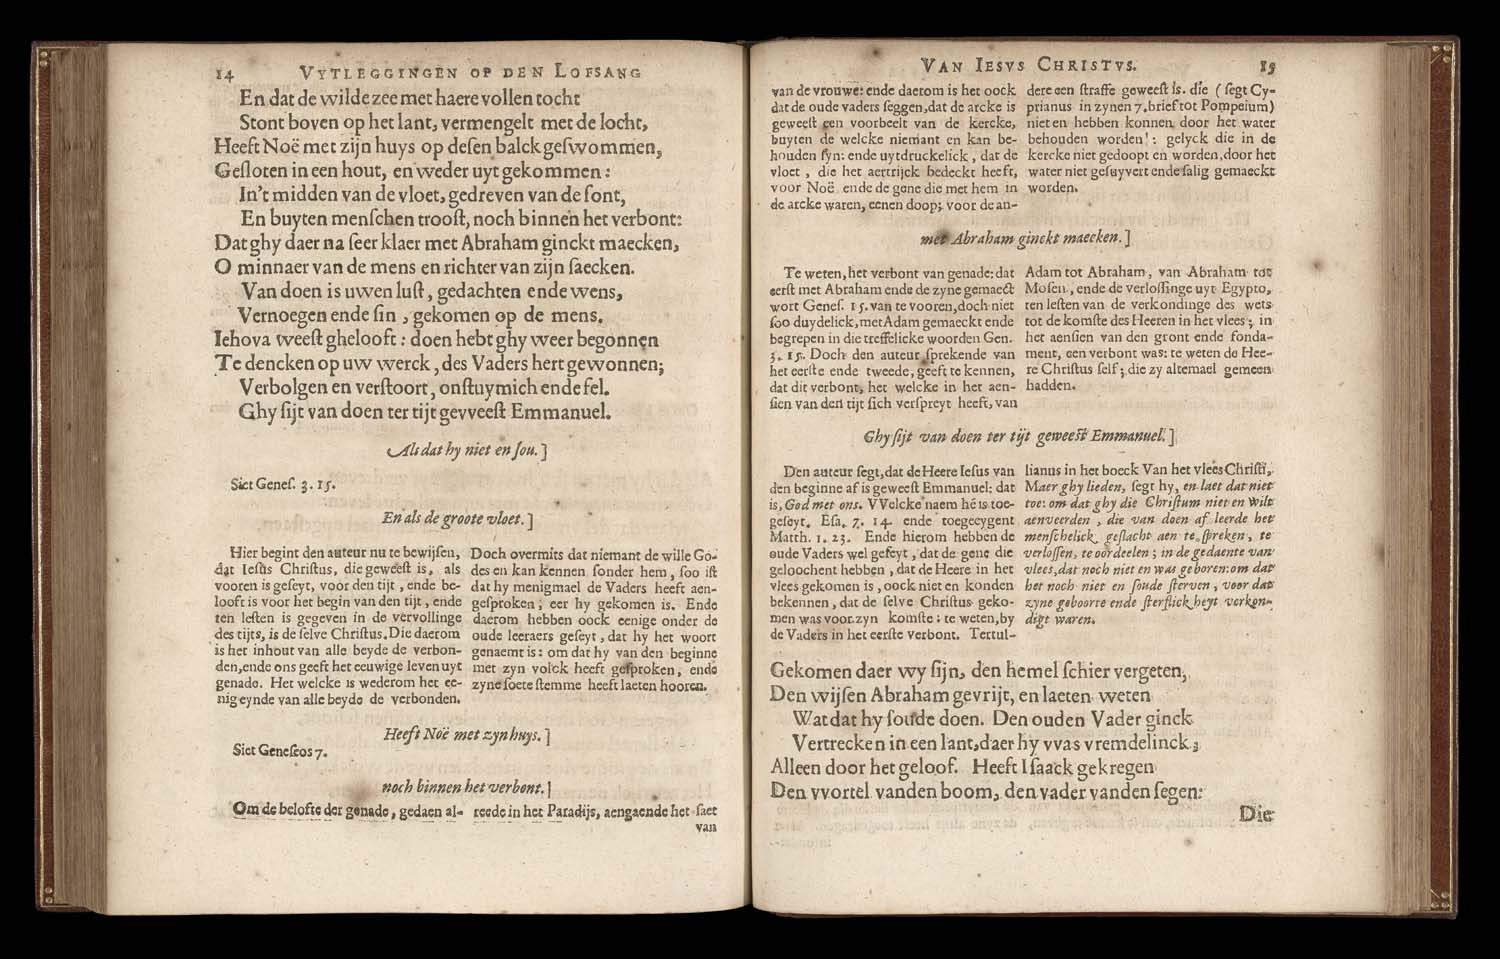 14 VYTLEGGINGEN OP DEN LOFSANG
En dat de wilde zee met haere vollen tocht
Stont boven op het lant, vermengelt met de locht,
Heeft Noë met zijn huys op desen balck geſwommen,
Geſloten in een hout, en weder uyt gekommen:
In't midden van de vloet, gedreven van de ſont,
En buyten menſchen trooſt, noch binnen het verbont:
Dat ghy daer na ſeer klaer met Abraham ginckt maecken,
O minnaer van de mens en richter van zijn ſaecken.
Van doen is uwen luſt, gedachten ende wens,
Vernoegen ende ſin, gekomen op de mens.
Iehova weeſt ghelooft: doen hebt ghy weer begonnen
Te dencken op uw werck, des Vaders hert gewonnen;
Verbolgen en verſtoort, onſtuymich ende fel.
Ghy ſijt van doen ter tijt gevveeſt Emmanuel.
Als dat hy niet en ſou.]
Siet Geneſ. 3. 15.
En als de groote vloet.]
Hier begint den auteur nu te bewijſen,
dat Ieſus Chriſtus, die geweeſt is, als
vooren is geſeyt, voor den tijt, ende be-
looft is voor het begin van den tijt, ende
ten leſten is gegeven in de vervollinge
des tijts, is de ſelve Chriſtus. Die daerom
is het inhout van alle beyde de verbon-
den, ende ons geeft het eeuwige leven uyt
genade. Het welcke is wederom het ee-
nig eynde van alle beyde de verbonden.
Doch overmits dat niemant de wille Go-
des en kan kennen ſonder hem, ſoo iſt
dat hy menigmael de Vaders heeft aen-
geſproken, eer hy gekomen is. Ende
daerom hebben oock eenige onder de
oude leeraers geſeyt, dat hy het woort
genaemt is: om dat hy van den beginne
met zyn volck heeft geſproken, ende
zyne ſoete ſtemme heeft laeten hooren.
Heeft Noë met zyn huys.]
Siet Geneſeos 7.
noch binnen het verbont.]
Om de belofte der genade, gedaen al-
reede in het Paradijs, aengaende het ſaet
van
VAN IESVS CHRISTVS. 15
van de vrouwe: ende daerom is het oock
dat de oude vaders ſeggen, dat de arcke is
geweeſt een voorbeelt van de kercke,
buyten de welcke niemant en kan be-
houden ſyn: ende uytdruckelick, dat de
vloet, die het aertrijck bedeckt heeft,
voor Noë ende de gene die met hem in
de arcke waren, eenen doop; voor de an-
dere een ſtraffe geweeſt is. die (ſegt Cy-
prianus in zynen 7. brief tot Pompeium)
niet en hebben konnen door het water
behouden worden: gelyck die in de
kercke niet gedoopt en worden, door het
water niet geſuyvert ende ſalig gemaeckt
worden.
met Abraham ginckt maecken.]
Te weten, het verbont van genade: dat
eerſt met Abraham ende de zyne gemaeckt
wort Geneſ. 15. van te vooren, doch niet
ſoo duydelick, met Adam gemaeckt ende
begrepen in die treffelicke woorden Gen.
3. 15. Doch den auteur ſprekende van
het eerſte ende tweede, geeft te kennen,
dat dit verbont, het welcke in het aen-
ſien van den tijt ſich verſpreyt heeft, van
Adam tot Abraham, van Abraham tot
Moſen, ende de verloſſinge uyt Egypto,
ten leſten van de verkondinge des wets
tot de komſte des Heeren in het vlees; in
het aenſien van den gront ende fonda-
ment, een verbont was: te weten de Hee-
re Chriſtus ſelf; die zy altemael gemeen
hadden.
Ghy ſijt van doen ter tijt geweeſt Emmanuel.]
Den auteur ſegt, dat de Heere Ieſus van
den beginne af is geweeſt Emmanuel: dat
is, God met ons. VVelcke naem hē is toe-
geſeyt. Eſa. 7. 14. ende toegeeygent
Matth. 1. 23. Ende hierom hebben de
oude Vaders wel geſeyt, dat de gene die
geloochent hebben, dat de Heere in het
vlees gekomen is, oock niet en konden
bekennen, dat de ſelve Chriſtus geko-
men was voor zyn komſte: te weten, by
de Vaders in het eerſte verbont. Tertul-
lianus in het boeck Van het vlees Chriſti,
Maer ghy lieden, ſegt hy, en laet dat niet
toe: om dat ghy die Chriſtum niet en wilt
aenveerden, die van doen af leerde het
menſchelick geſlacht aen te ſpreken, te
verloſſen, te oordeelen; in de gedaente van
vlees, dat noch niet en was geboren: om dat
het noch niet en ſoude ſterven, voor dat
zyne geboorte ende ſterflickheyt verkon-
digt waren.
Gekomen daer wy ſijn, den hemel ſchier vergeten,
Den wijſen Abraham gevrijt, en laeten weten
Wat dat hy ſoude doen. Den ouden Vader ginck
Vertrecken in een lant, daer hy vvas vremdelinck;
Alleen door het geloof. Heeft Iſaack gekregen
Den vvortel vanden boom, den vader vanden ſegen:
Die